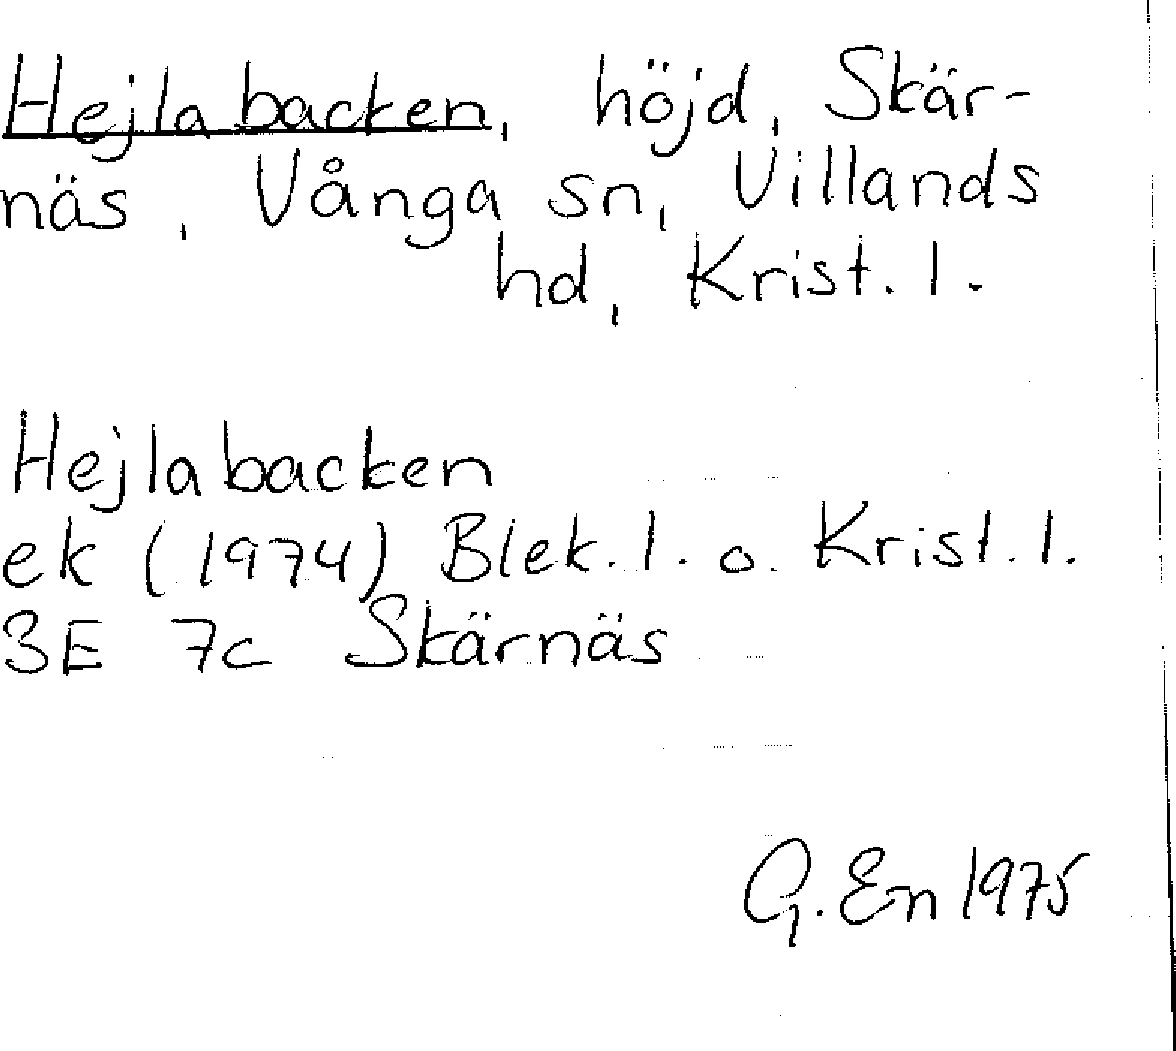 Hejlabacken, höjd, Skär-
näs, Vånga sn, Villands
hd, Krist. l.
Hejlabacken
ek (1974) Blek. l. o. Krist. l.
3E 7c Skärnäs
G. En 1975